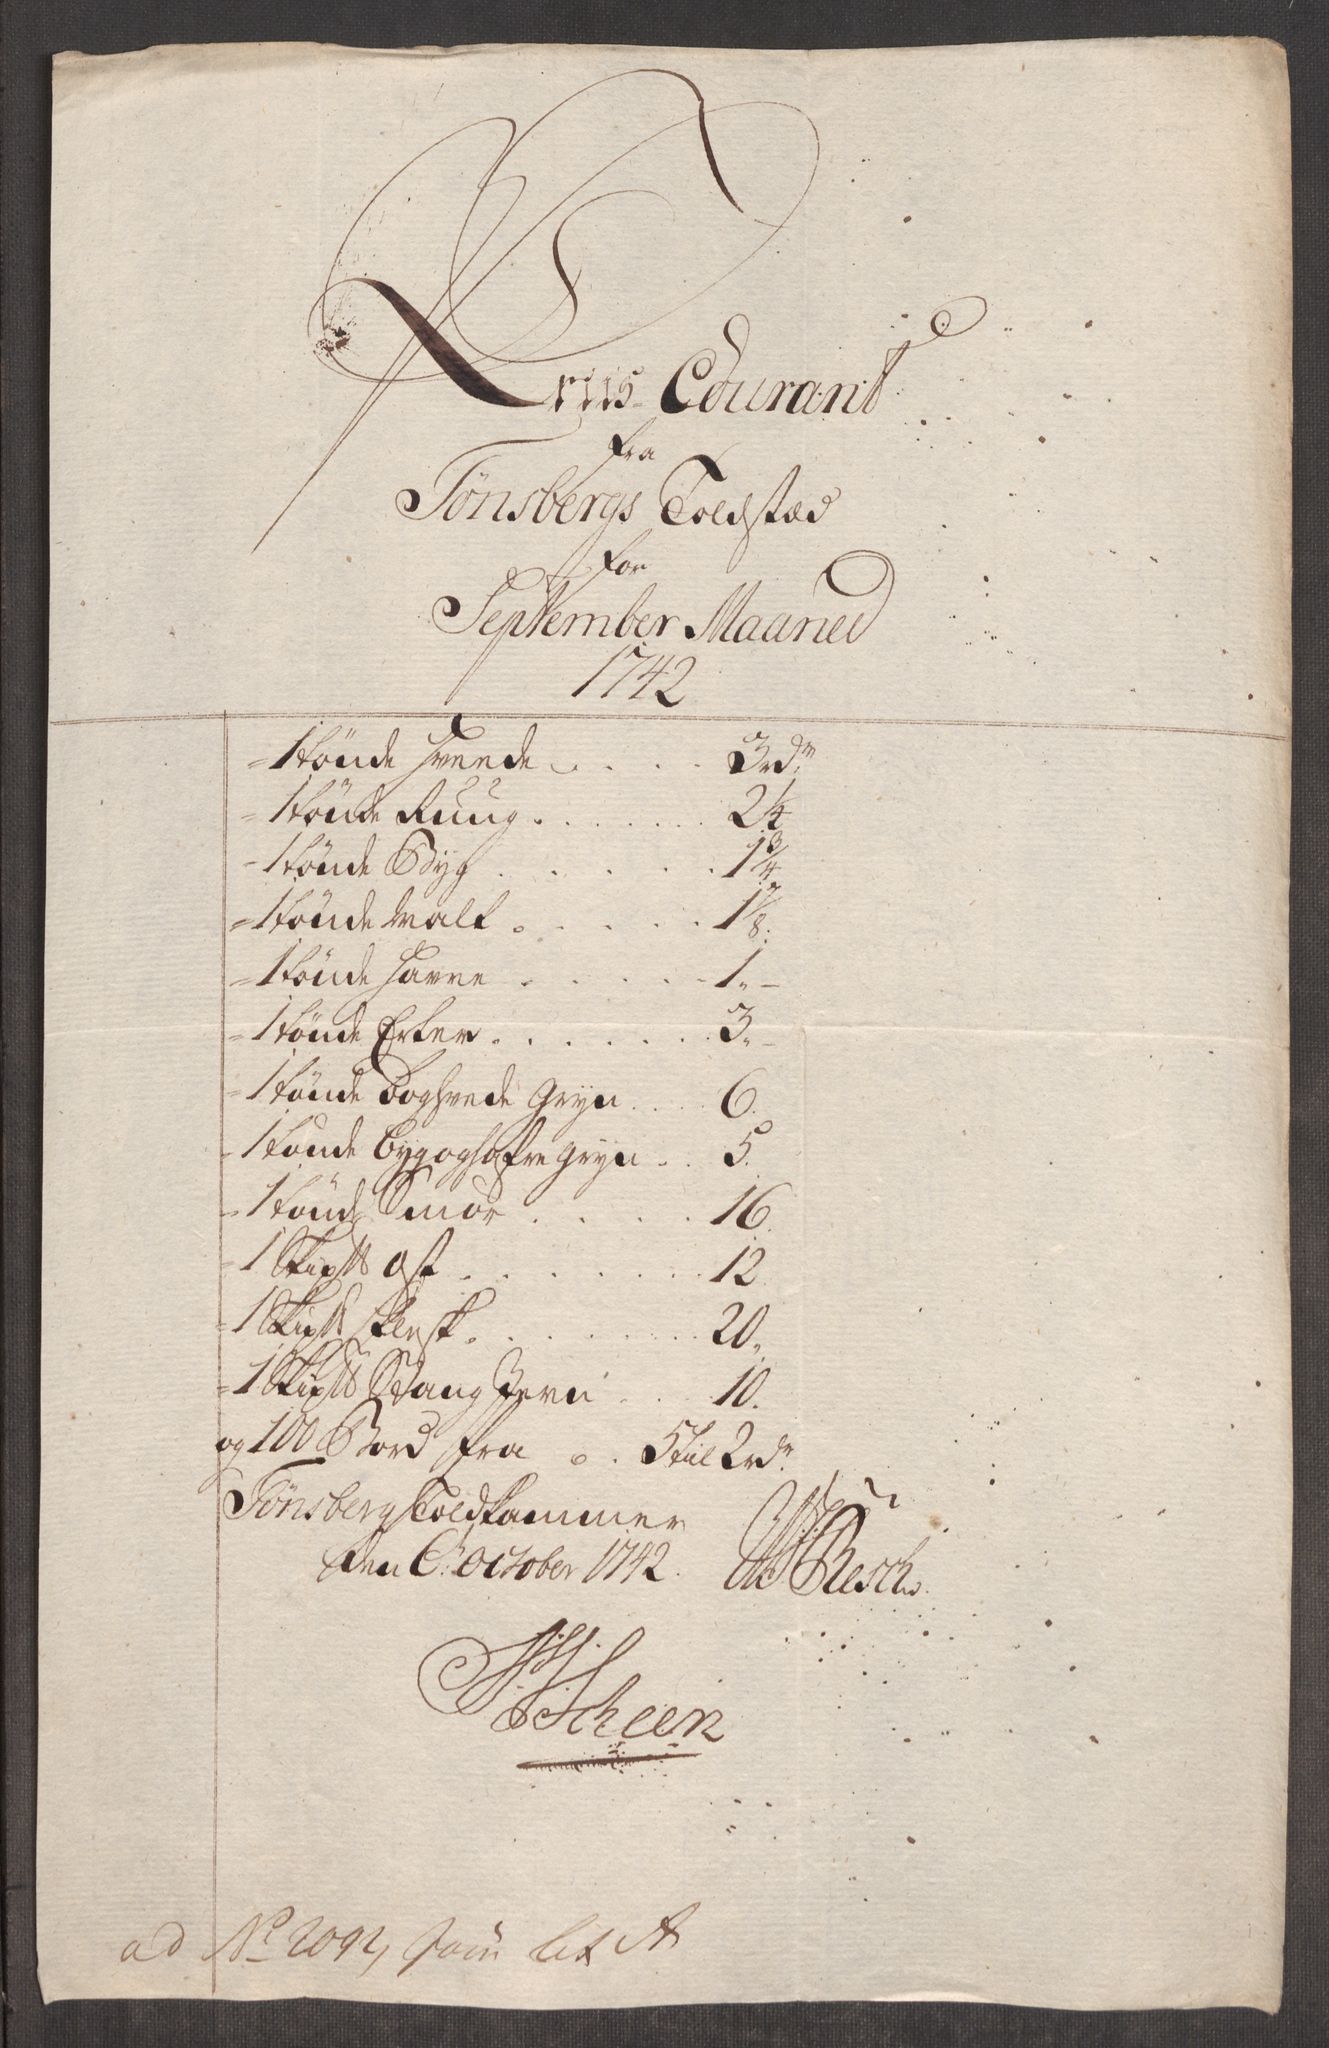 Priis Courant
fra
Tønsbergs Toldstæd
for
September Maaned
1742
= 1 tønde Hveede . . . . 3 rdr
= 1 tønde Ruug . . . . . . 2 1/4
= 1 tønde Byg . . . . . . 1 3/4
= 1 tønde Malt . . . . . 1 7/8.
= 1 tønde Havre . . . . . 1. -
= 1 tønde Erter . . . . . . . 3. -
= 1 tønde boghvede Gryn . . . 6.
= 1 tønde byg og hafre gryn . . 5.
= 1 tønde Smør . . . . . 16.
= 1 Skip℔ Ost . . . . . . . 12
= 1 Skip℔ flesk . . . . . . . 20.
= 1 Skip℔ Stang Jern . . 10.
og 100 Bord fra . . 5 til 2 rdr
Tønsberg Toldkammer
den 6. October 1742. Resch.
Scheen
ad No 2092, lit A